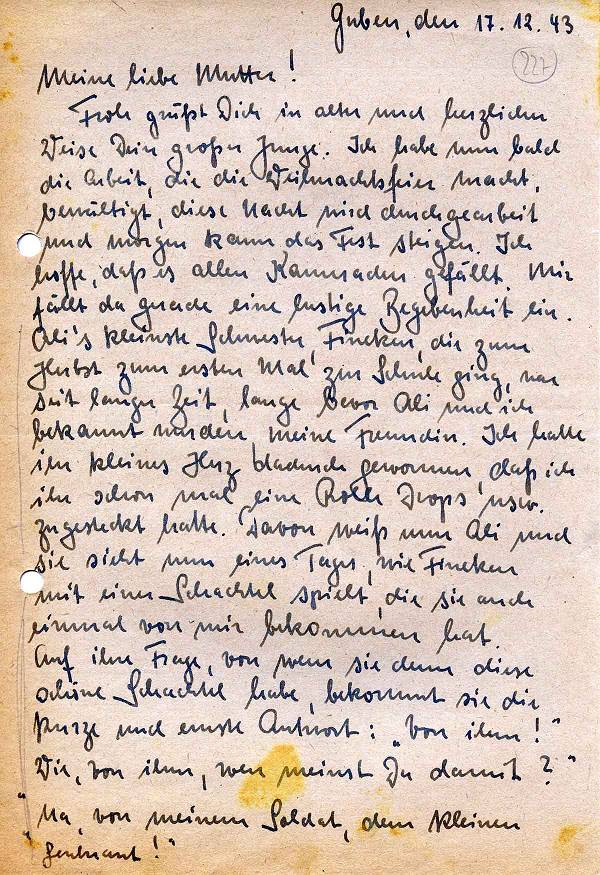 Guben, den 17.12.43
227
Meine liebe Mutter!
Froh grüßt Dich in alter und herzlicher
Weise Dein großer Junge. Ich habe nun bald
die Arbeit, die die Weihnachtsfeier macht,
bewältigt, diese Nacht wird durchgearbeit
und morgen kann das Fest steigen. Ich
hoffe, daß es allen Kameraden gefällt. Mir
fällt da gerade eine lustige Begebenheit ein.
Ali's kleinste Schwester, Fineken, die zum
Herbst zum ersten Mal zur Schule ging, war
seit langer Zeit, lange bevor Ali und ich
bekannt wurden, meine Freundin. Ich hatte
ihr kleines Herz dadurch gewonnen, daß ich
ihr schon mal eine Rolle Drops usw.
zugesteckt hatte. Davon weiß nun Ali und
sie sieht nun eines Tages, wie Fineken
mit einer Schachtel spielt, die sie auch
einmal von mir bekommen hat.
Auf ihre Frage, von wem sie denn diese
schöne Schachtel habe, bekommt sie die
kurze und ernste Antwort: „Von ihm!"
Wie, von ihm, wen meinst Du damit?"
"Na, von meinem Soldat, dem kleinen
Leutnant!"